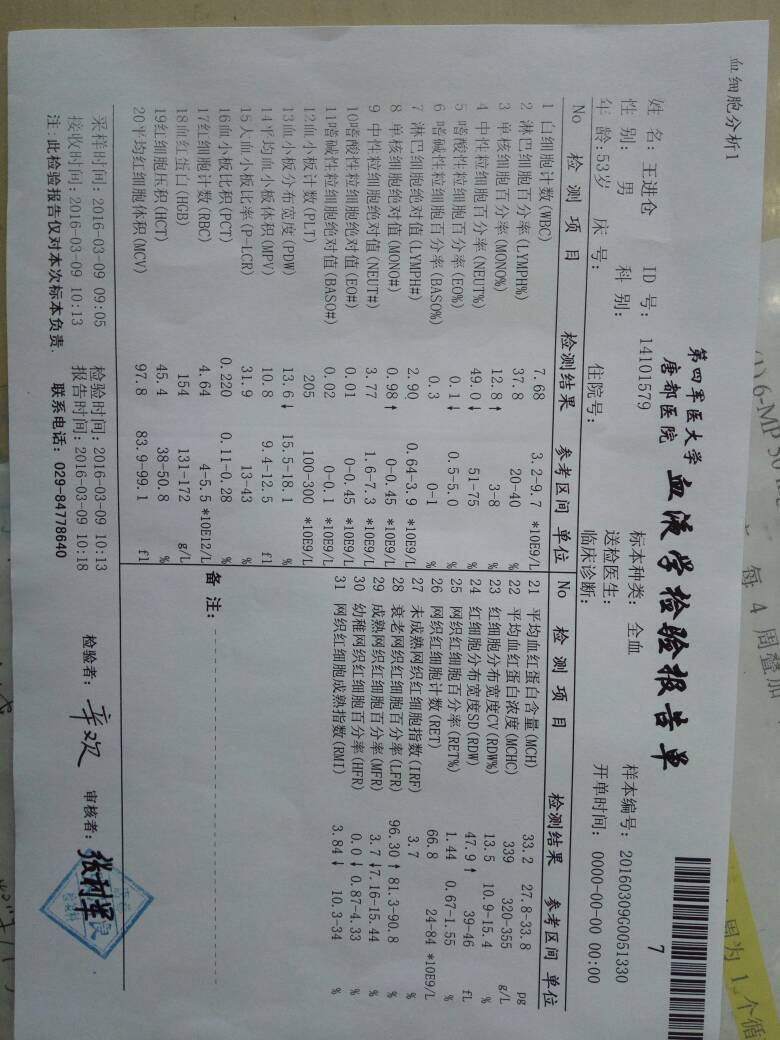 血细胞分析1
第四军医大学
唐都医院
血液学检验报告单
7
姓 名: 王进仓 ID 号: 14101579 标本种类: 全血 样本编号: 20160309G0051330
性 别: 男 科 别: 送检医生: 开单时间: 0000-00-00 00:00
年 龄:53岁 床 号: 住院号: 临床诊断:
No 检 测 项 目 检测结果 参考区间 单位 No 检 测 项 目 检测结果 参考区间 单位
1 白细胞计数(WBC) 7.68 3.2-9.7 *10E9/L 21 平均血红蛋白含量(MCH) 33.2 27.8-33.8 pg
2 淋巴细胞百分率(LYMPH%) 37.8 20-40 % 22 平均血红蛋白浓度(MCHC) 339 320-355 g/L
3 单核细胞百分率(MONO%) 12.8↑ 3-8 % 23 红细胞分布宽度CV(RDW%) 13.5 10.9-15.4 %
4 中性粒细胞百分率(NEUT%) 49.0↓ 51-75 % 24 红细胞分布宽度SD(RDW) 47.9↑ 39-46 fL
5 嗜酸性粒细胞百分率(EO%) 0.1↓ 0.5-5.0 % 25 网织红细胞百分率(RET%) 1.44 0.67-1.55 %
6 嗜碱性粒细胞百分率(BASO%) 0.3 0-1 % 26 网织红细胞计数(RET) 66.8 24-84 *10E9/L
7 淋巴细胞绝对值(LYMPH#) 2.90 0.64-3.9 *10E9/L 27 未成熟网织红细胞指数(IRF) 3.7 %
8 单核细胞绝对值(MONO#) 0.98↑ 0-0.45 *10E9/L 28 衰老网织红细胞百分率(LFR) 96.30↑ 81.3-90.8 %
9 中性粒细胞绝对值(NEUT#) 3.77 1.6-7.3 *10E9/L 29 成熟网织红细胞百分率(MFR) 3.7↓ 7.16-15.44 %
10嗜酸性粒细胞绝对值(EO#) 0.01 0-0.45 *10E9/L 30 幼稚网织红细胞百分率(HFR) 0.0↓ 0.87-4.33 %
11嗜碱性粒细胞绝对值(BASO#) 0.02 0-0.1 *10E9/L 31 网织红细胞成熟指数(RMI) 3.84↓ 10.3-34 %
12血小板计数(PLT) 205 100-300 *10E9/L
13血小板分布宽度(PDW) 13.6↓ 15.5-18.1 %
14平均血小板体积(MPV) 10.8 9.4-12.5 fl
15大血小板比率(P-LCR) 31.9 13-43 %
16血小板比积(PCT) 0.220 0.11-0.28 %
17红细胞计数(RBC) 4.64 4-5.5 *10E12/L 备 注:
18血红蛋白(HGB) 154 131-172 g/L
19红细胞压积(HCT) 45.4 38-50.8 %
20平均红细胞体积(MCV) 97.8 83.9-99.1 fl
采样时间: 2016-03-09 09:05 检验时间: 2016-03-09 10:13 检验者: 辛欢 审核者:
接收时间: 2016-03-09 10:13 报告时间: 2016-03-09 10:18
注:此检验报告仅对本次标本负责. 联系电话: 029-84778640
每 4 周叠加
周为 1 个循